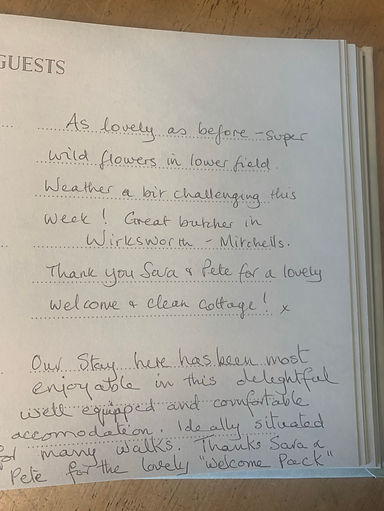 GUESTS
As lovely as before - super
wild flowers in lower field.
Weather a bit challenging this
week! Great butcher in
Wirksworth - Mitchells.
Thank you Sara & Pete for a lovely
welcome & clean cottage! x
Our Stay here has been most
enjoyable in this delightful
well equipped and comfortable
accomodation. Ideally situated
for many walks. Thanks Sara &
Pete for the lovely "Welcome Pack"